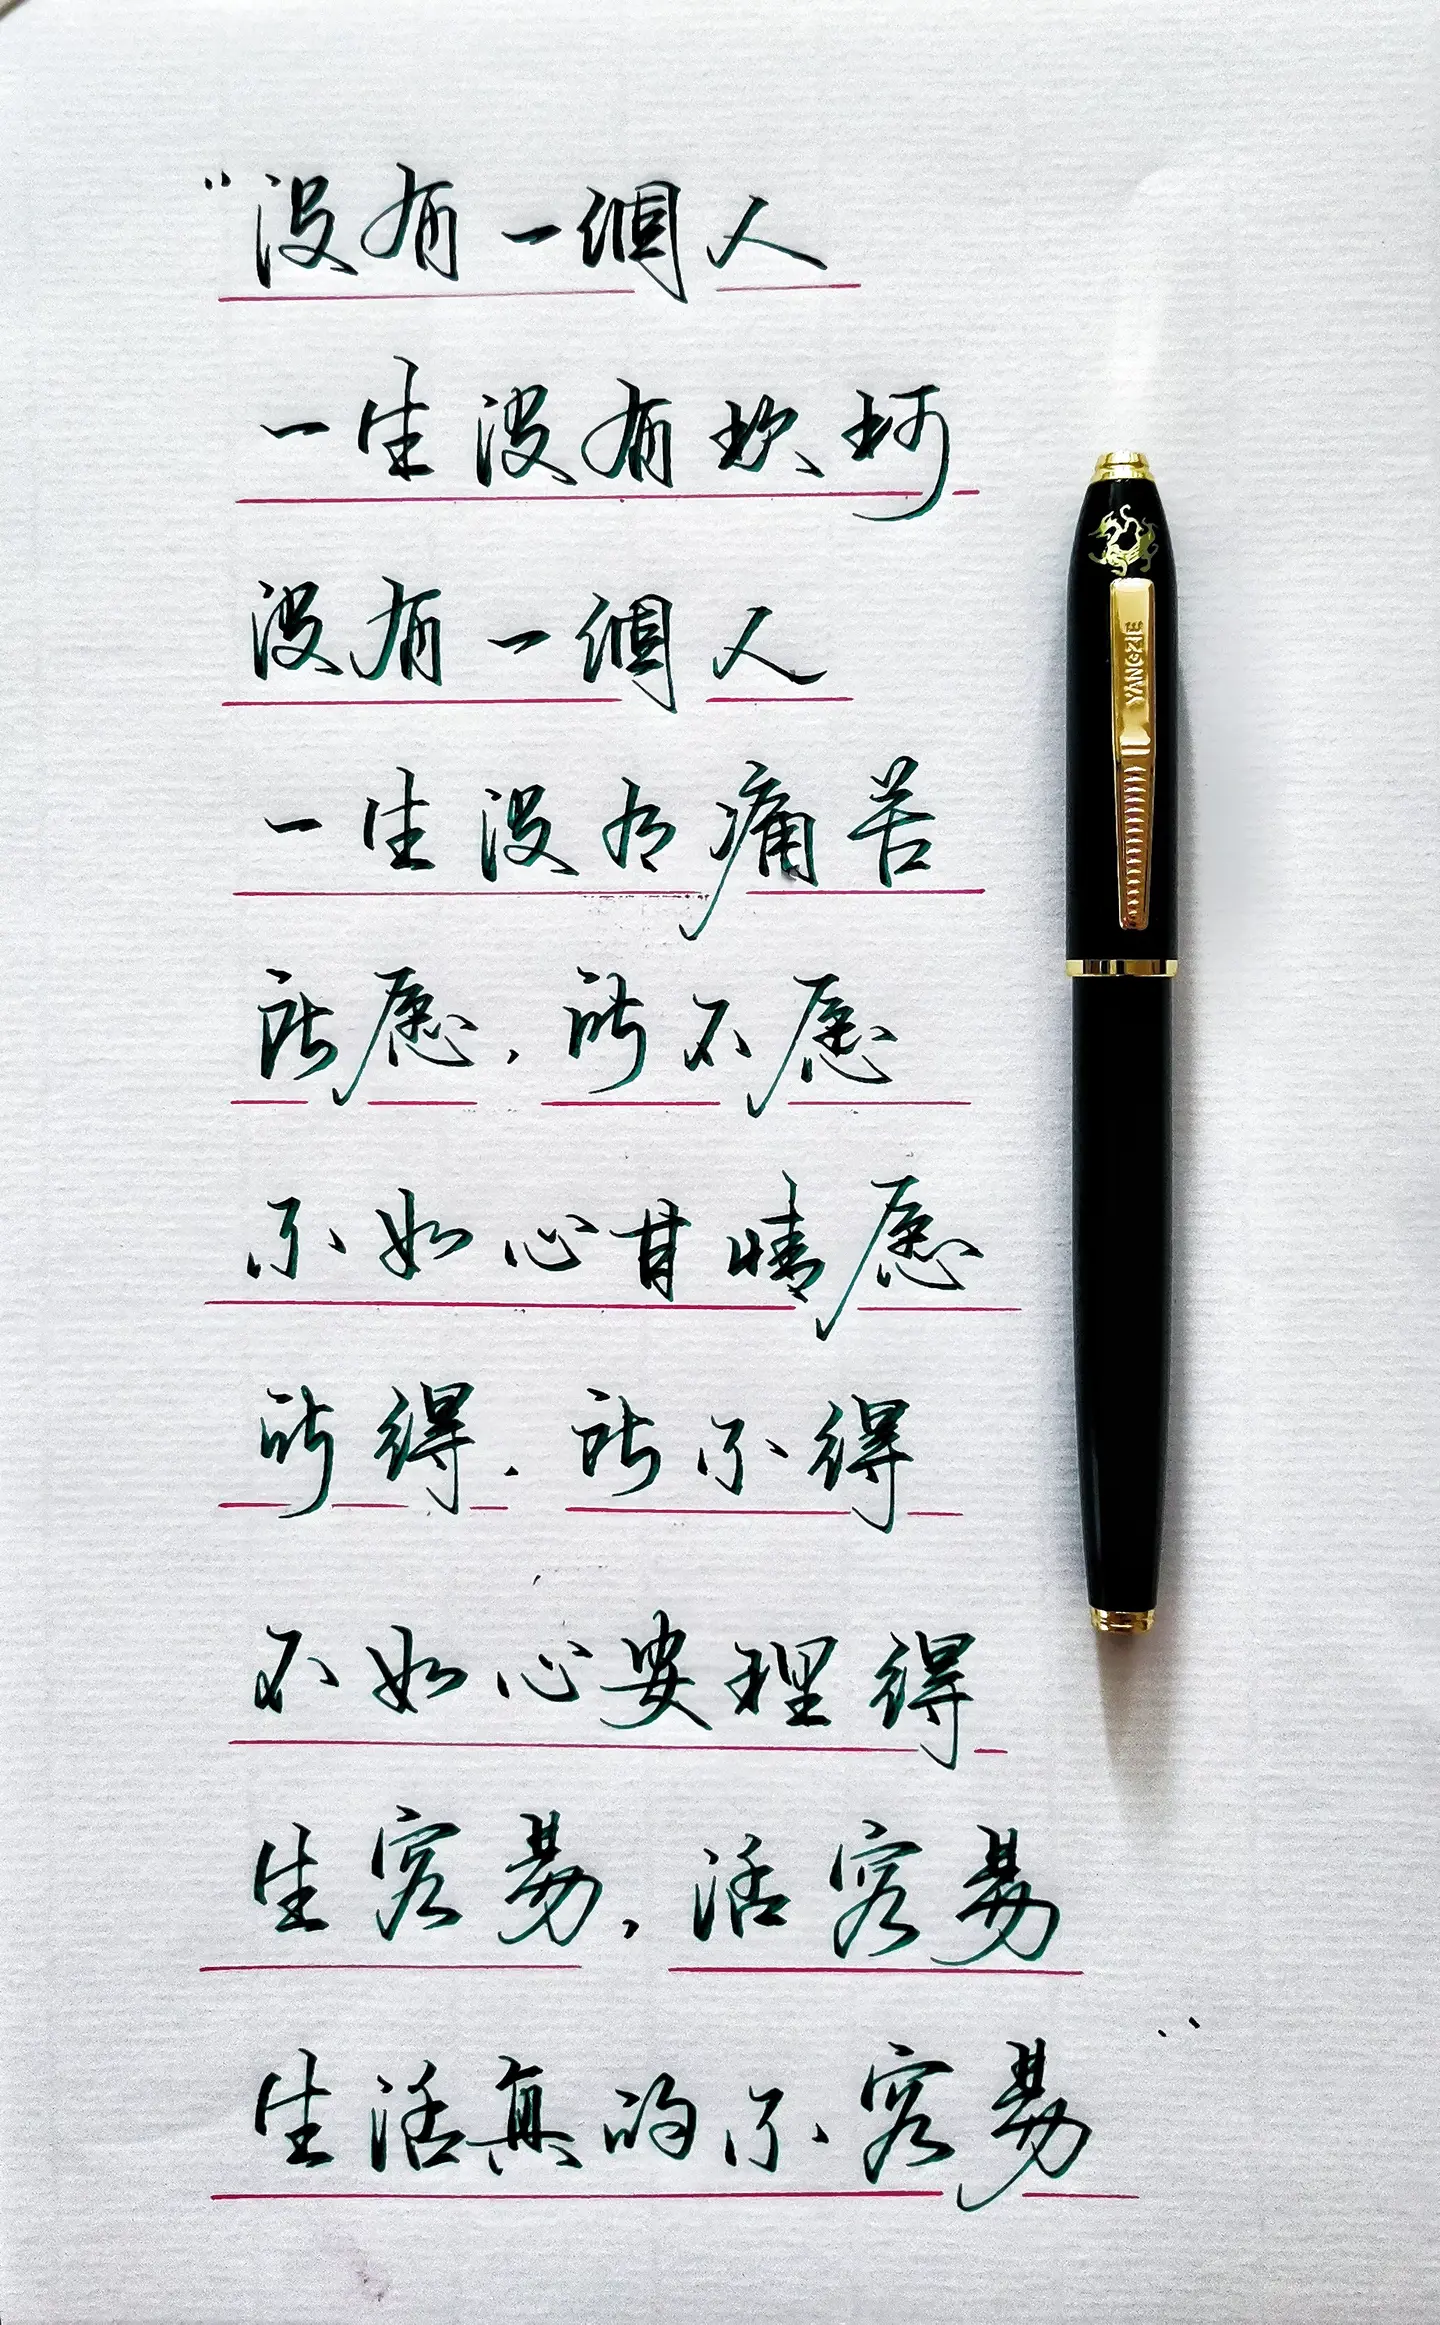 “没有一個人
一生没有坎坷
没有一個人
一生没有痛苦
所愿，所不愿
不如心甘情愿
所得．所不得
不如心安理得
生容易，活容易
生活真的不容易”
YANGZIE